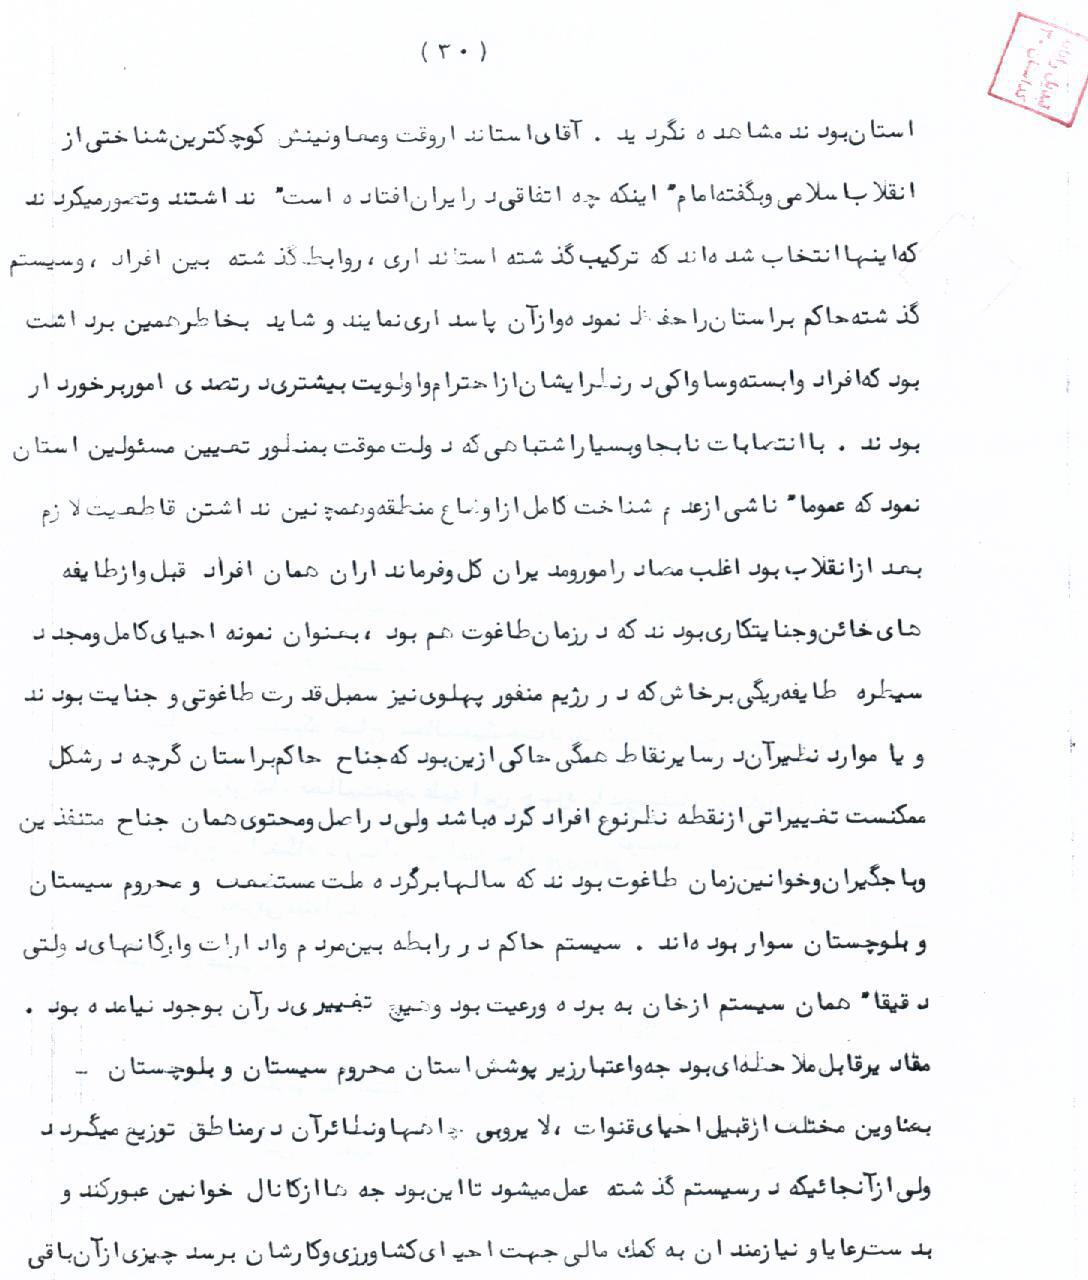 ( ۳۰ )
استان بودند مشاهده نگردید . آقای استاندار وقت و معاونینش کوچکترین شناختی از
انقلاب اسلامی و بگفته امام " اینکه چه اتفاقی در ایران افتاده است " نداشتند و تصور میکردند
که اینها انتخاب شده اند که ترکیب گذشته استانداری ، روابط گذشته بین افراد ، و سیستم
گذشته حاکم بر استان را حفظ نموده و از آن پاسداری نمایند و شاید بخاطر همین برداشت
بود که افراد وابسته و ساواکی در نظر ایشان از احترام و اولویت بیشتری در تصدی امور برخوردار
بودند . با انتصابات نابجا و بسیار اشتباهی که دولت موقت بمنظور تعیین مسئولین استان
نمود که عموما" ناشی از عدم شناخت کامل از اوضاع منطقه و همچنین نداشتن قاطعیت لازم
بعد از انقلاب بود اغلب مصادر امور و مدیران کل و فرمانداران همان افراد قبل و از طایفه
های خائن و جنایتکاری بودند که در زمان طاغوت هم بود ، بعنوان نمونه احیای کامل و مجدد
سیطره طایفه ریگی بر خاش که در رژیم منفور پهلوی نیز سمبل قدرت طاغوتی و جنایت بودند
و یا موارد نظیر آن در سایر نقاط همگی حاکی ازین بود که جناح حاکم بر استان گرچه در شکل
ممکنست تغییراتی از نقطه نظر نوع افراد کرده باشد ولی در اصل و محتوی همان جناح متنفذین
و باجگیران و خوانین زمان طاغوت بودند که سالها بر گرده ملت مستضعف و محروم سیستان
و بلوچستان سوار بوده اند . سیستم حاکم در رابطه بین مردم و ادارات و ارگانهای دولتی
دقیقا" همان سیستم ارخان به برده و رعیت بود و هیچ تغییری در آن بوجود نیامده بود .
مقادیر قابل ملاحظه ای بودجه و اعتبار زیر پوشش استان محروم سیستان و بلوچستان -
بعناوین مختلف از قبیل احیای قنوات ، لایروبی چاهها و نظائر آن در مناطق توزیع میگردد
ولی از آنجائیکه در سیستم گذشته عمل میشود تا این بودجه ها از کانال خوانین عبور کند و
بدست رعایا و نیازمندان به کمك مالی جهت احیای کشاورزی و کارشان برسد چیزی از آن باقی